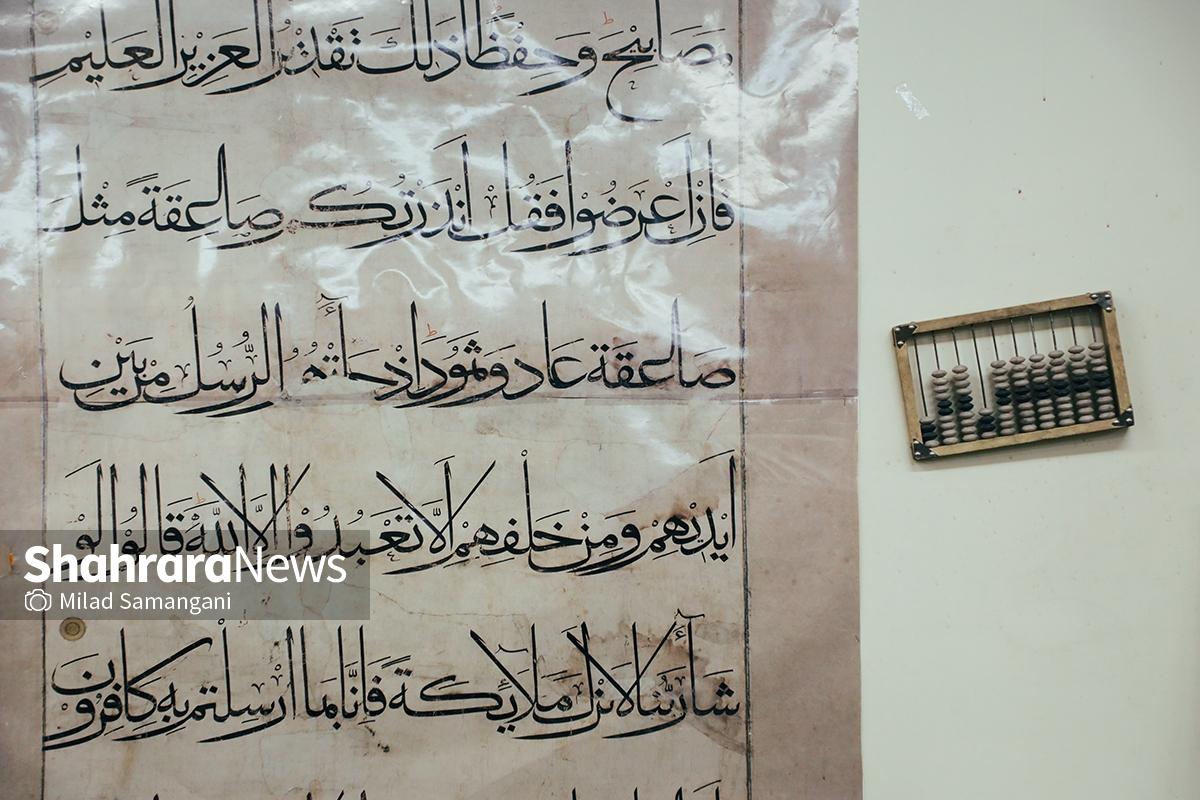 مصابيح وحفظا ذلك تقدير العزيز العليم
فان اعرضوا فقل انذرتكم صاعقة مثل
صاعقة عاد وثمود اذ جاتهم الرسل من بين
ايديهم ومن خلفهم الا تعبدوا الا الله قالوا لو
شا ربنا لانزل ملايكة فانا بما ارسلتم به كافرون
ShahraraNews
Milad Samangani